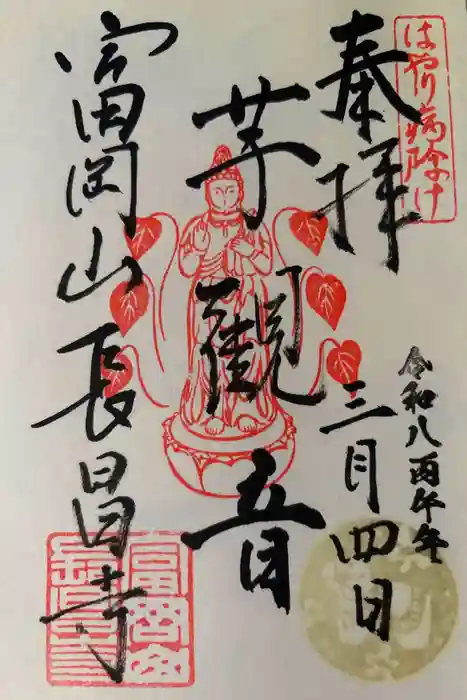 はやり病除け
奉拝
令和八丙午年
三月四日
芋観音
富岡山長昌寺